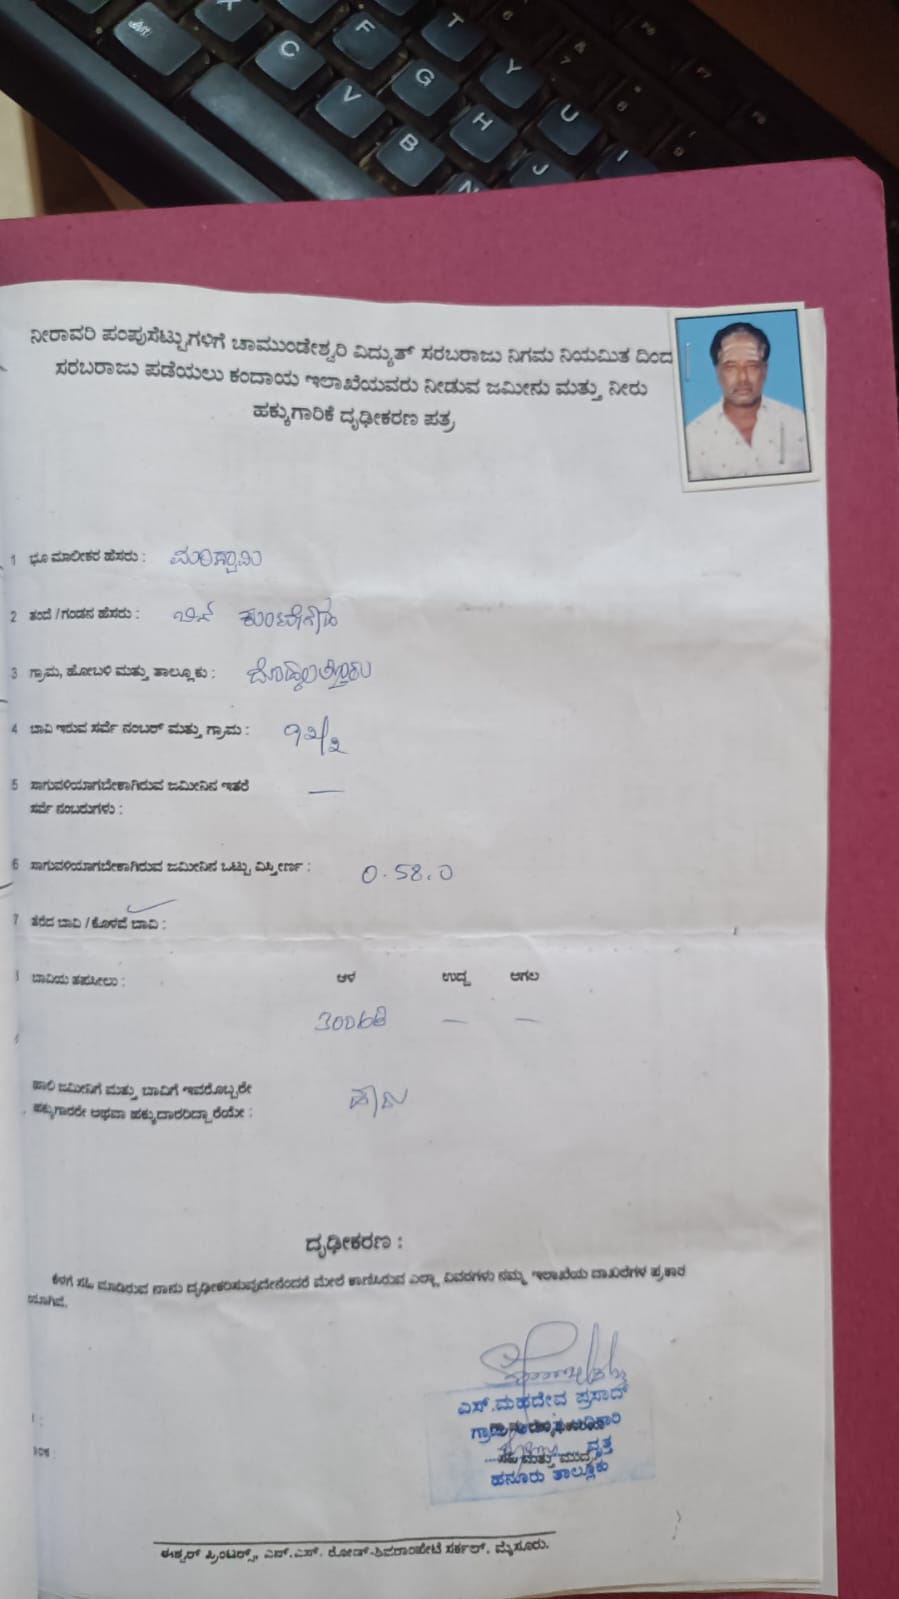 ನೀರಾವರಿ ಪಂಪುಸೆಟ್ಟುಗಳಿಗೆ ಚಾಮುಂಡೇಶ್ವರಿ ವಿದ್ಯುತ್ ಸರಬರಾಜು ನಿಗಮ ನಿಯಮಿತ ದಿಂದ
ಸರಬರಾಜು ಪಡೆಯಲು ಕಂದಾಯ ಇಲಾಖೆಯವರು ನೀಡುವ ಜಮೀನು ಮತ್ತು ನೀರು
ಹಕ್ಕುಗಾರಿಕೆ ದೃಢೀಕರಣ ಪತ್ರ
1 ಭೂ ಮಾಲೀಕರ ಹೆಸರು : ಮರಿಸ್ವಾಮಿ
2 ತಂದೆ / ಗಂಡನ ಹೆಸರು : ಬಿನ್
3 ಗ್ರಾಮ, ಹೋಬಳಿ ಮತ್ತು ತಾಲ್ಲೂಕು :
4 ಬಾವಿ ಇರುವ ಸರ್ವೆ ನಂಬರ್ ಮತ್ತು ಗ್ರಾಮ :
5 ಸಾಗುವಳಿಯಾಗಬೇಕಾಗಿರುವ ಜಮೀನಿನ ಇತರೆ —
ಸರ್ವೆ ನಂಬರುಗಳು :
6 ಸಾಗುವಳಿಯಾಗಬೇಕಾಗಿರುವ ಜಮೀನಿನ ಒಟ್ಟು ವಿಸ್ತೀರ್ಣ : 0.58.0
7 ತೆರೆದ ಬಾವಿ / ಕೊಳವೆ ಬಾವಿ :
ಬಾವಿಯ ತಪಸೀಲು : ಆಳ ಉದ್ದ ಅಗಲ
300 ಅಡಿ — —
ಹಾಲಿ ಜಮೀನಿಗೆ ಮತ್ತು ಬಾವಿಗೆ ಇವರೊಬ್ಬರೇ
ಹಕ್ಕುಗಾರರೇ ಅಥವಾ ಹಕ್ಕುದಾರರಿದ್ದಾರೆಯೇ : ಹೌದು
ದೃಢೀಕರಣ :
ಕೆಳಗೆ ಸಹಿ ಮಾಡಿರುವ ನಾನು ದೃಢೀಕರಿಸುವುದೇನೆಂದರೆ ಮೇಲೆ ಕಾಣಿಸಿರುವ ಎಲ್ಲಾ ವಿವರಗಳು ನಮ್ಮ ಇಲಾಖೆಯ ದಾಖಲೆಗಳ ಪ್ರಕಾರ
ಯಾಗಿವೆ.
ಎಸ್.ಮಹದೇವ ಪ್ರಸಾದ್
ವೃತ್ತ
ಸಹಿ ಮತ್ತು ಮುದ್ರೆ
ಹನೂರು ತಾಲ್ಲೂಕು
ಈಶ್ವರ್ ಪ್ರಿಂಟರ್ಸ್, ಎನ್.ಎಸ್. ರೋಡ್-ಶಿವರಾಂಪೇಟೆ ಸರ್ಕಲ್, ಮೈಸೂರು.